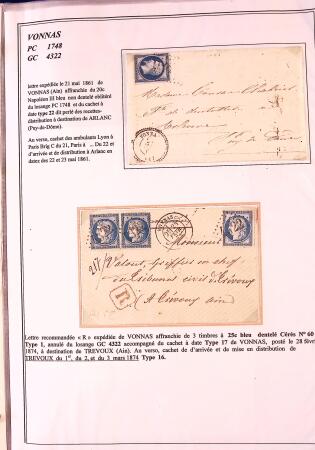 VONNAS
PC 1748
GC 4322
lettre expédiée le 21 mai 1861 de
VONNAS (Ain) affranchie du 20c
Napoléon III bleu non dentelé oblitéré
du losange PC 1748 et du cachet à
date type 22 dit perlé des recettes-
distribution à destination de ARLANC
(Puy-de-Dôme).
Au verso, cachet des ambulants Lyon à
Paris Brig C du 21, Paris à .. Du 22 et
d'arrivée et de distribution à Arlanc en
dates des 22 et 23 mai 1861.
Monsieur
R
Tribunal civil à Trévoux
à Trévoux ain
Lettre recommandée « R » expédiée de VONNAS affranchie de 3 timbres à 25c bleu dentelé Cérès N° 60
Type 1, annulé du losange GC 4322 accompagné du cachet à date Type 17 de VONNAS, posté le 28 févri
1874, à destination de TREVOUX (Ain). Au verso, cachet de d'arrivée et de mise en distribution de
TREVOUX du 1er, du 2, et du 3 mars 1874 Type 16.